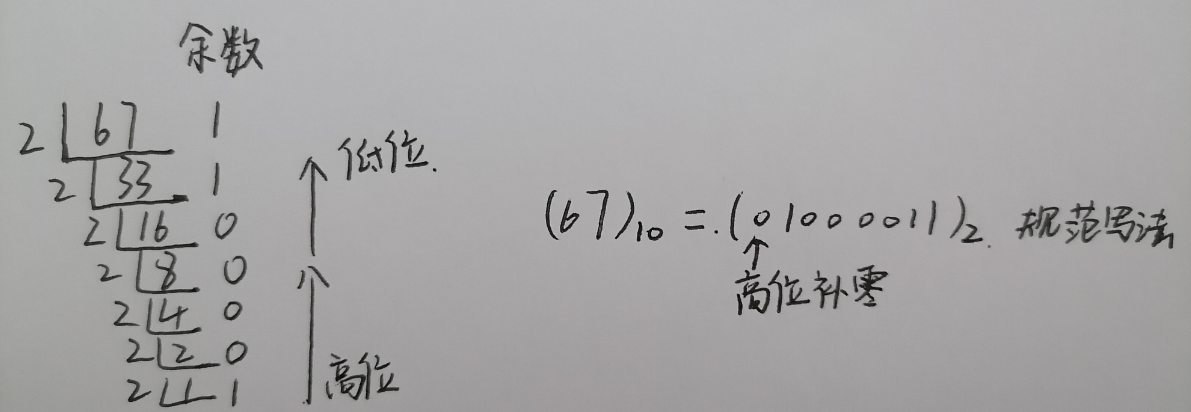 余数
2 67 1
2 33 1
2 16 0
2 8 0
2 4 0
2 2 0
2 1 1
低位.
高位
(67)₁₀ = (01000011)₂ 规范写法
高位补零